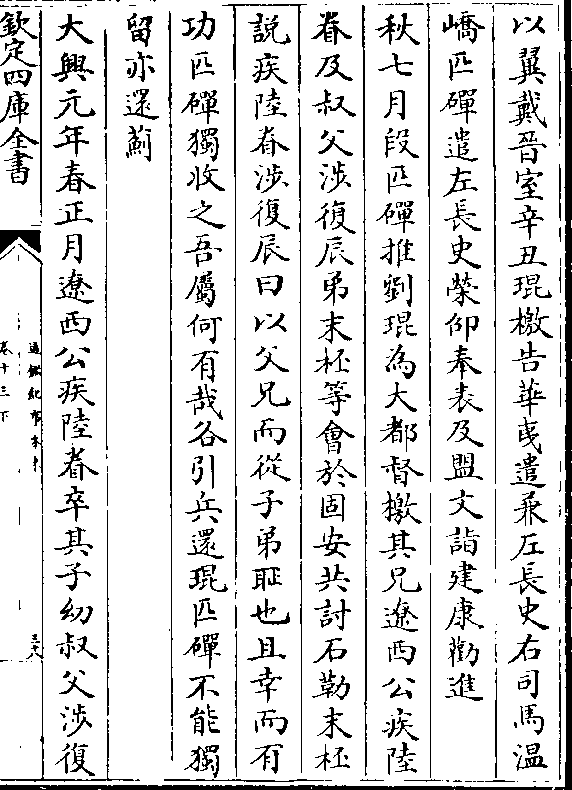 以翼戴晉室辛丑琨檄告華夷遣兼左長史右司馬温
嶠匹磾遣左長史榮仰奉表及盟文詣建康勸進
秋七月段匹磾推劉琨為大都督檄其兄遼西公疾陸
眷及叔父涉復辰弟末柸等會於固安共討石勒末柸
說疾陸眷涉復辰曰以父兄而從子弟耻也且幸而有
功匹磾獨收之吾屬何有哉各引兵還琨匹磾不能獨
留亦還薊
大興元年春正月遼西公疾陸眷卒其子幼叔父涉復
欽定四庫全書
通鑑紀事本末
卷十三下